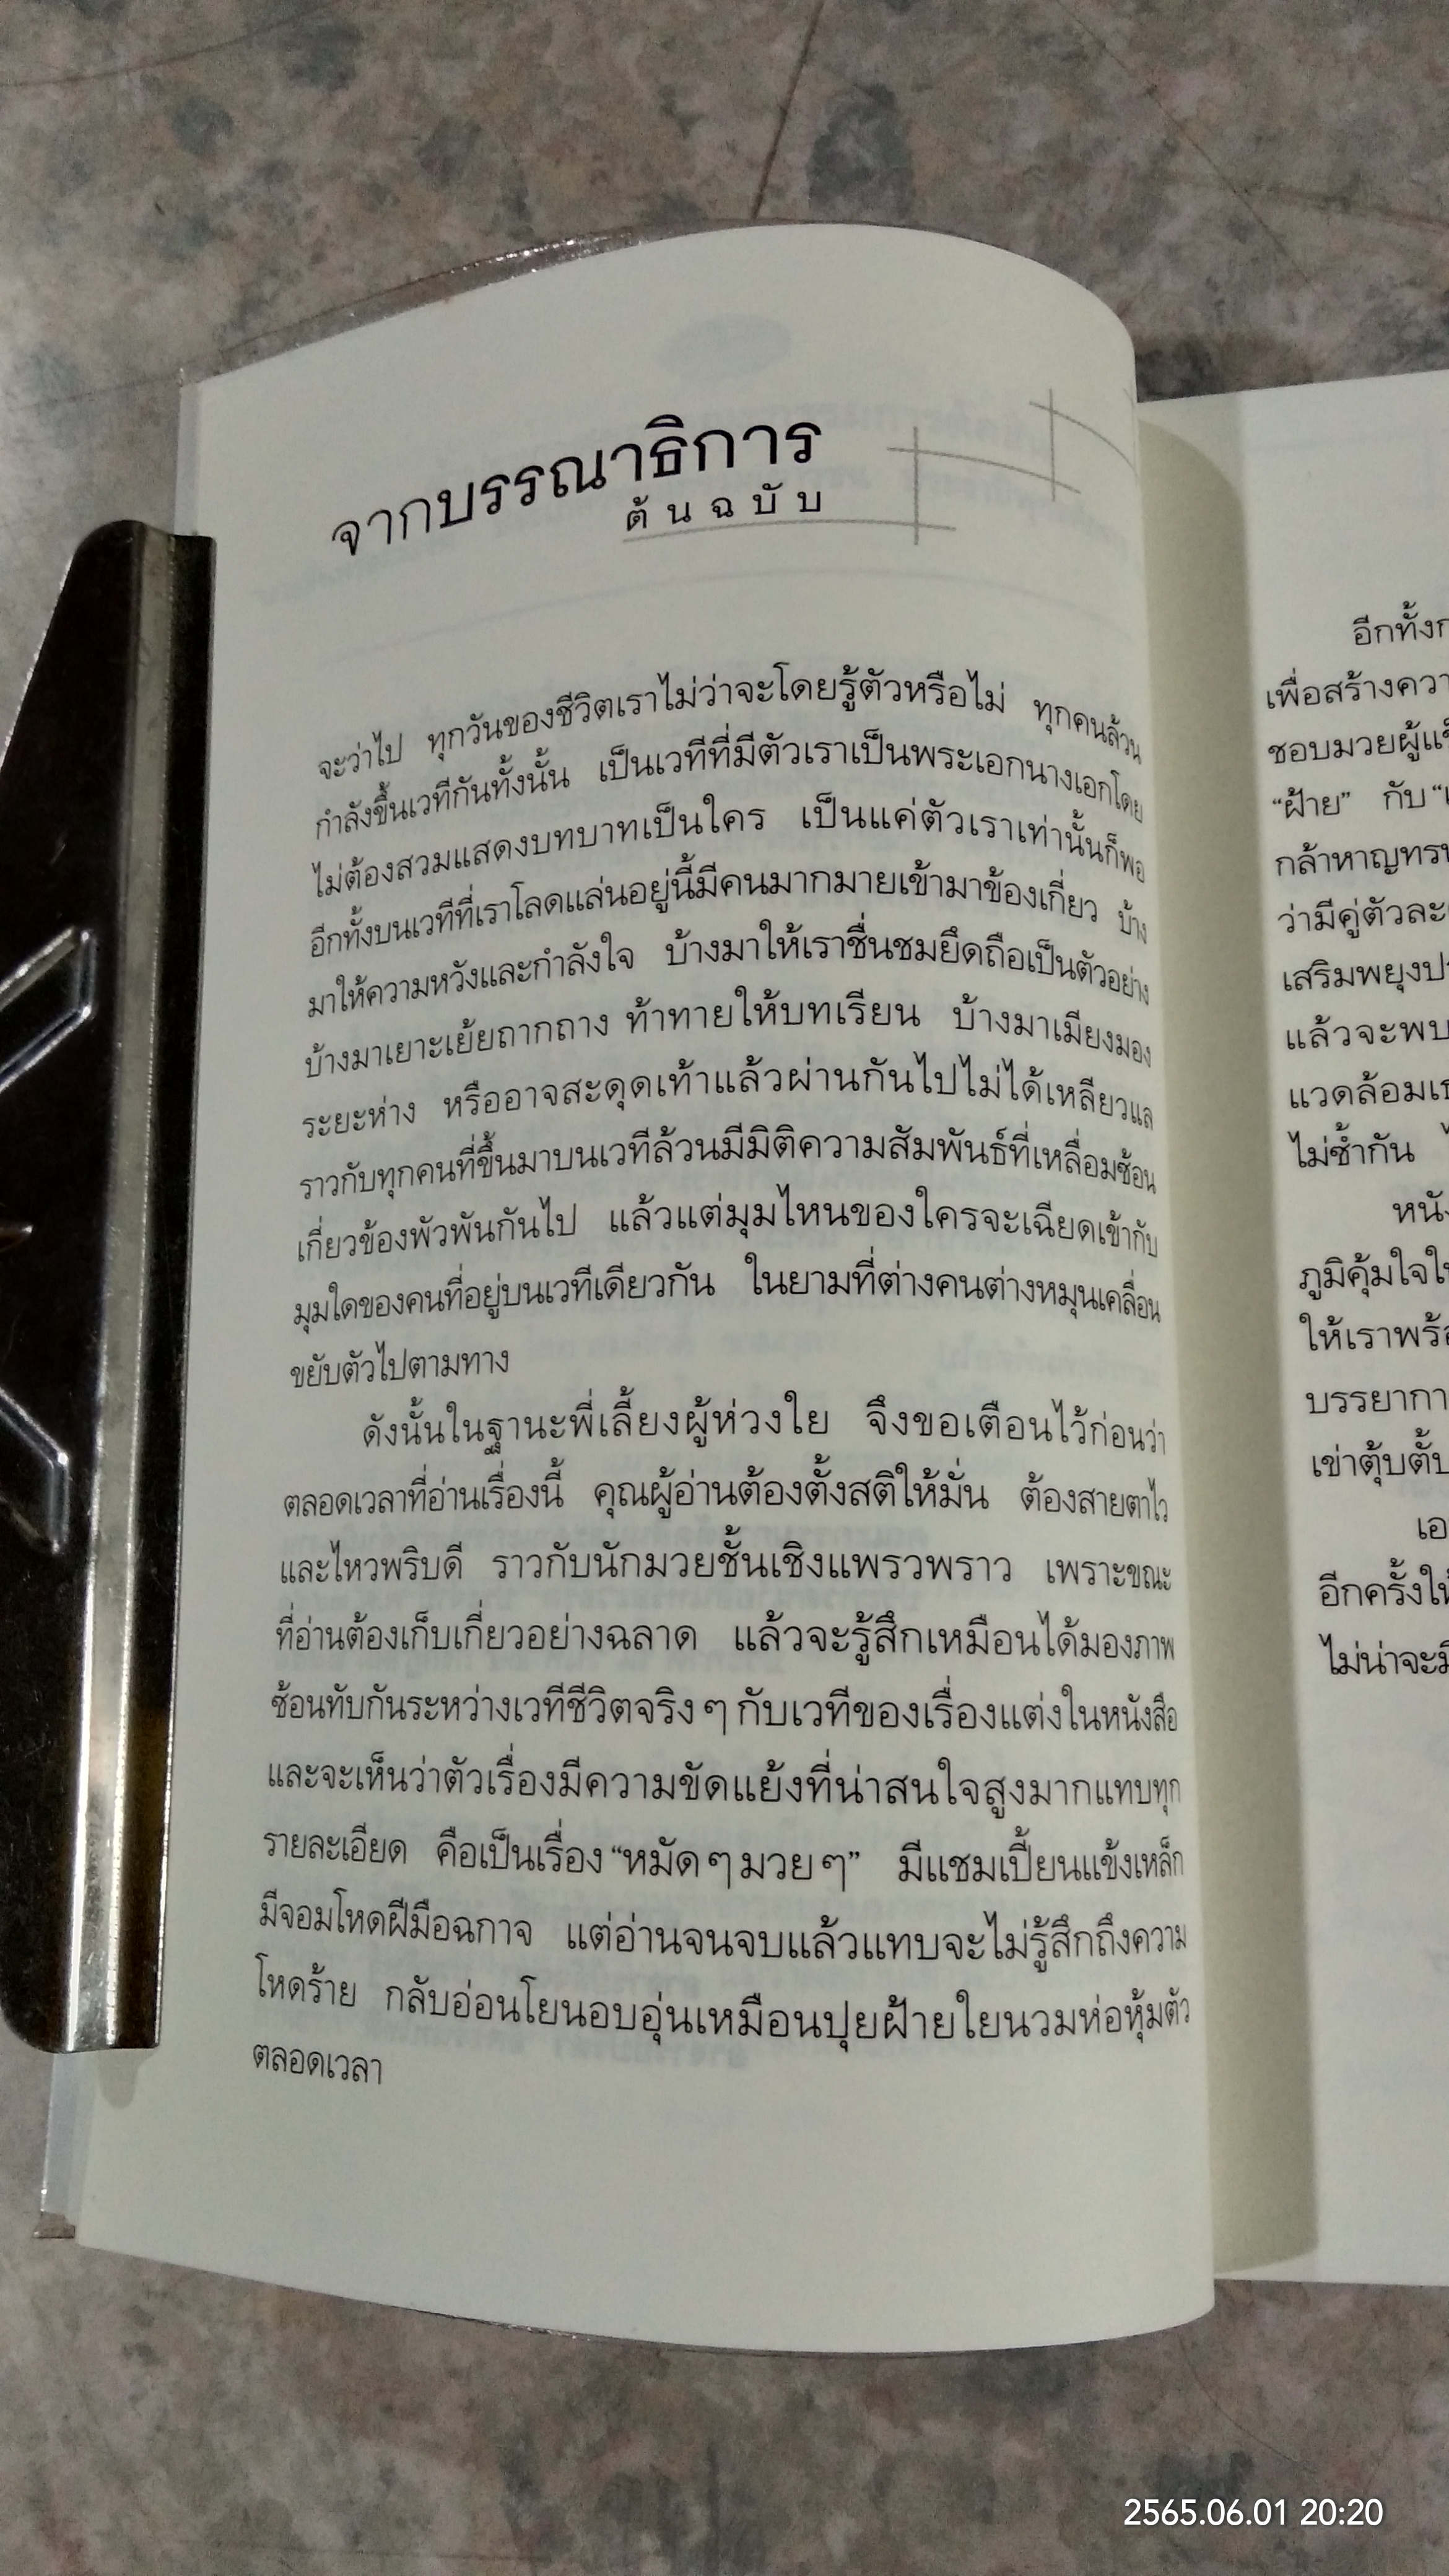 จากบรรณาธิการ
ต้นฉบับ
จะว่าไป ทุกวันของชีวิตเราไม่ว่าจะโดยรู้ตัวหรือไม่ ทุกคนล้วน
กำลังขึ้นเวทีกันทั้งนั้น เป็นเวทีที่มีตัวเราเป็นพระเอกนางเอกโดย
ไม่ต้องสวมแสดงบทบาทเป็นใคร เป็นแค่ตัวเราเท่านั้นก็พอ
อีกทั้งบนเวทีที่เราโลดแล่นอยู่นี้มีคนมากมายเข้ามาข้องเกี่ยว บ้าง
มาให้ความหวังและกำลังใจ บ้างมาให้เราชื่นชมยึดถือเป็นตัวอย่าง
บ้างมาเยาะเย้ยถากถาง ท้าทายให้บทเรียน บ้างมาเมียงมอง
ระยะห่าง หรืออาจสะดุดเท้าแล้วผ่านกันไปไม่ได้เหลียวแล
ราวกับทุกคนที่ขึ้นมาบนเวทีล้วนมีมิติความสัมพันธ์ที่เหลื่อมซ้อน
เกี่ยวข้องพัวพันกันไป แล้วแต่มุมไหนของใครจะเฉียดเข้ากับ
มุมใดของคนที่อยู่บนเวทีเดียวกัน ในยามที่ต่างคนต่างหมุนเคลื่อน
ขยับตัวไปตามทาง
ดังนั้นในฐานะพี่เลี้ยงผู้ห่วงใย จึงขอเตือนไว้ก่อนว่า
ตลอดเวลาที่อ่านเรื่องนี้ คุณผู้อ่านต้องตั้งสติให้มั่น ต้องสายตาไว
และไหวพริบดี ราวกับนักมวยชั้นเชิงแพรวพราว เพราะขณะ
ที่อ่านต้องเก็บเกี่ยวอย่างฉลาด แล้วจะรู้สึกเหมือนได้มองภาพ
ซ้อนทับกันระหว่างเวทีชีวิตจริงๆ กับเวทีของเรื่องแต่งในหนังสือ
และจะเห็นว่าตัวเรื่องมีความขัดแย้งที่น่าสนใจสูงมากแทบทุก
รายละเอียด คือเป็นเรื่อง “หมัดๆ มวยๆ” มีแชมเปี้ยนแข้งเหล็ก
มีจอมโหดฝีมือฉกาจ แต่อ่านจนจบแล้วแทบจะไม่รู้สึกถึงความ
โหดร้าย กลับอ่อนโยนอบอุ่นเหมือนปุยฝ้ายใยนวมห่อหุ้มตัว
ตลอดเวลา
อีกทั้ง
เพื่อสร้าง
ชอบมวยผู้
“ฝ้าย” กับ
กล้าหาญ
ว่ามีคู่ตัวละ
เสริมพยุง
แล้วจะพบ
แวดล้อม
ไม่ซ้ำกัน
ภูมิคุ้มใจ
ให้เรา
เข่าตุ้บตั้บ
อีกครั้ง
ไม่น่าจะ
2565.06.01 20:20